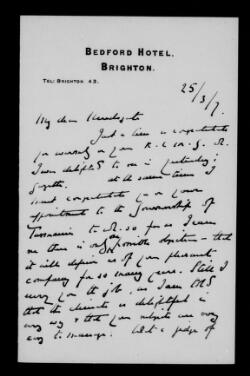 BEDFORD HOTEL,
BRIGHTON.
TEL: BRIGHTON 43.
25/3/7.
My dear
Just a line to congratulate
you warmly on your K.C.M.G. &
I was delighted to see in yesterday's
Gazette. At the same time I
must congratulate you on your
appointment to the Governorship of
Tasmania to &, so far as I can
see there is only one possible objection – that
it will deprive us of your pleasant
company for so many years. Still I
envy you the job, as I am told
that the climate is delightful in
every way & that your subjects are very
easy to manage. But a judge of